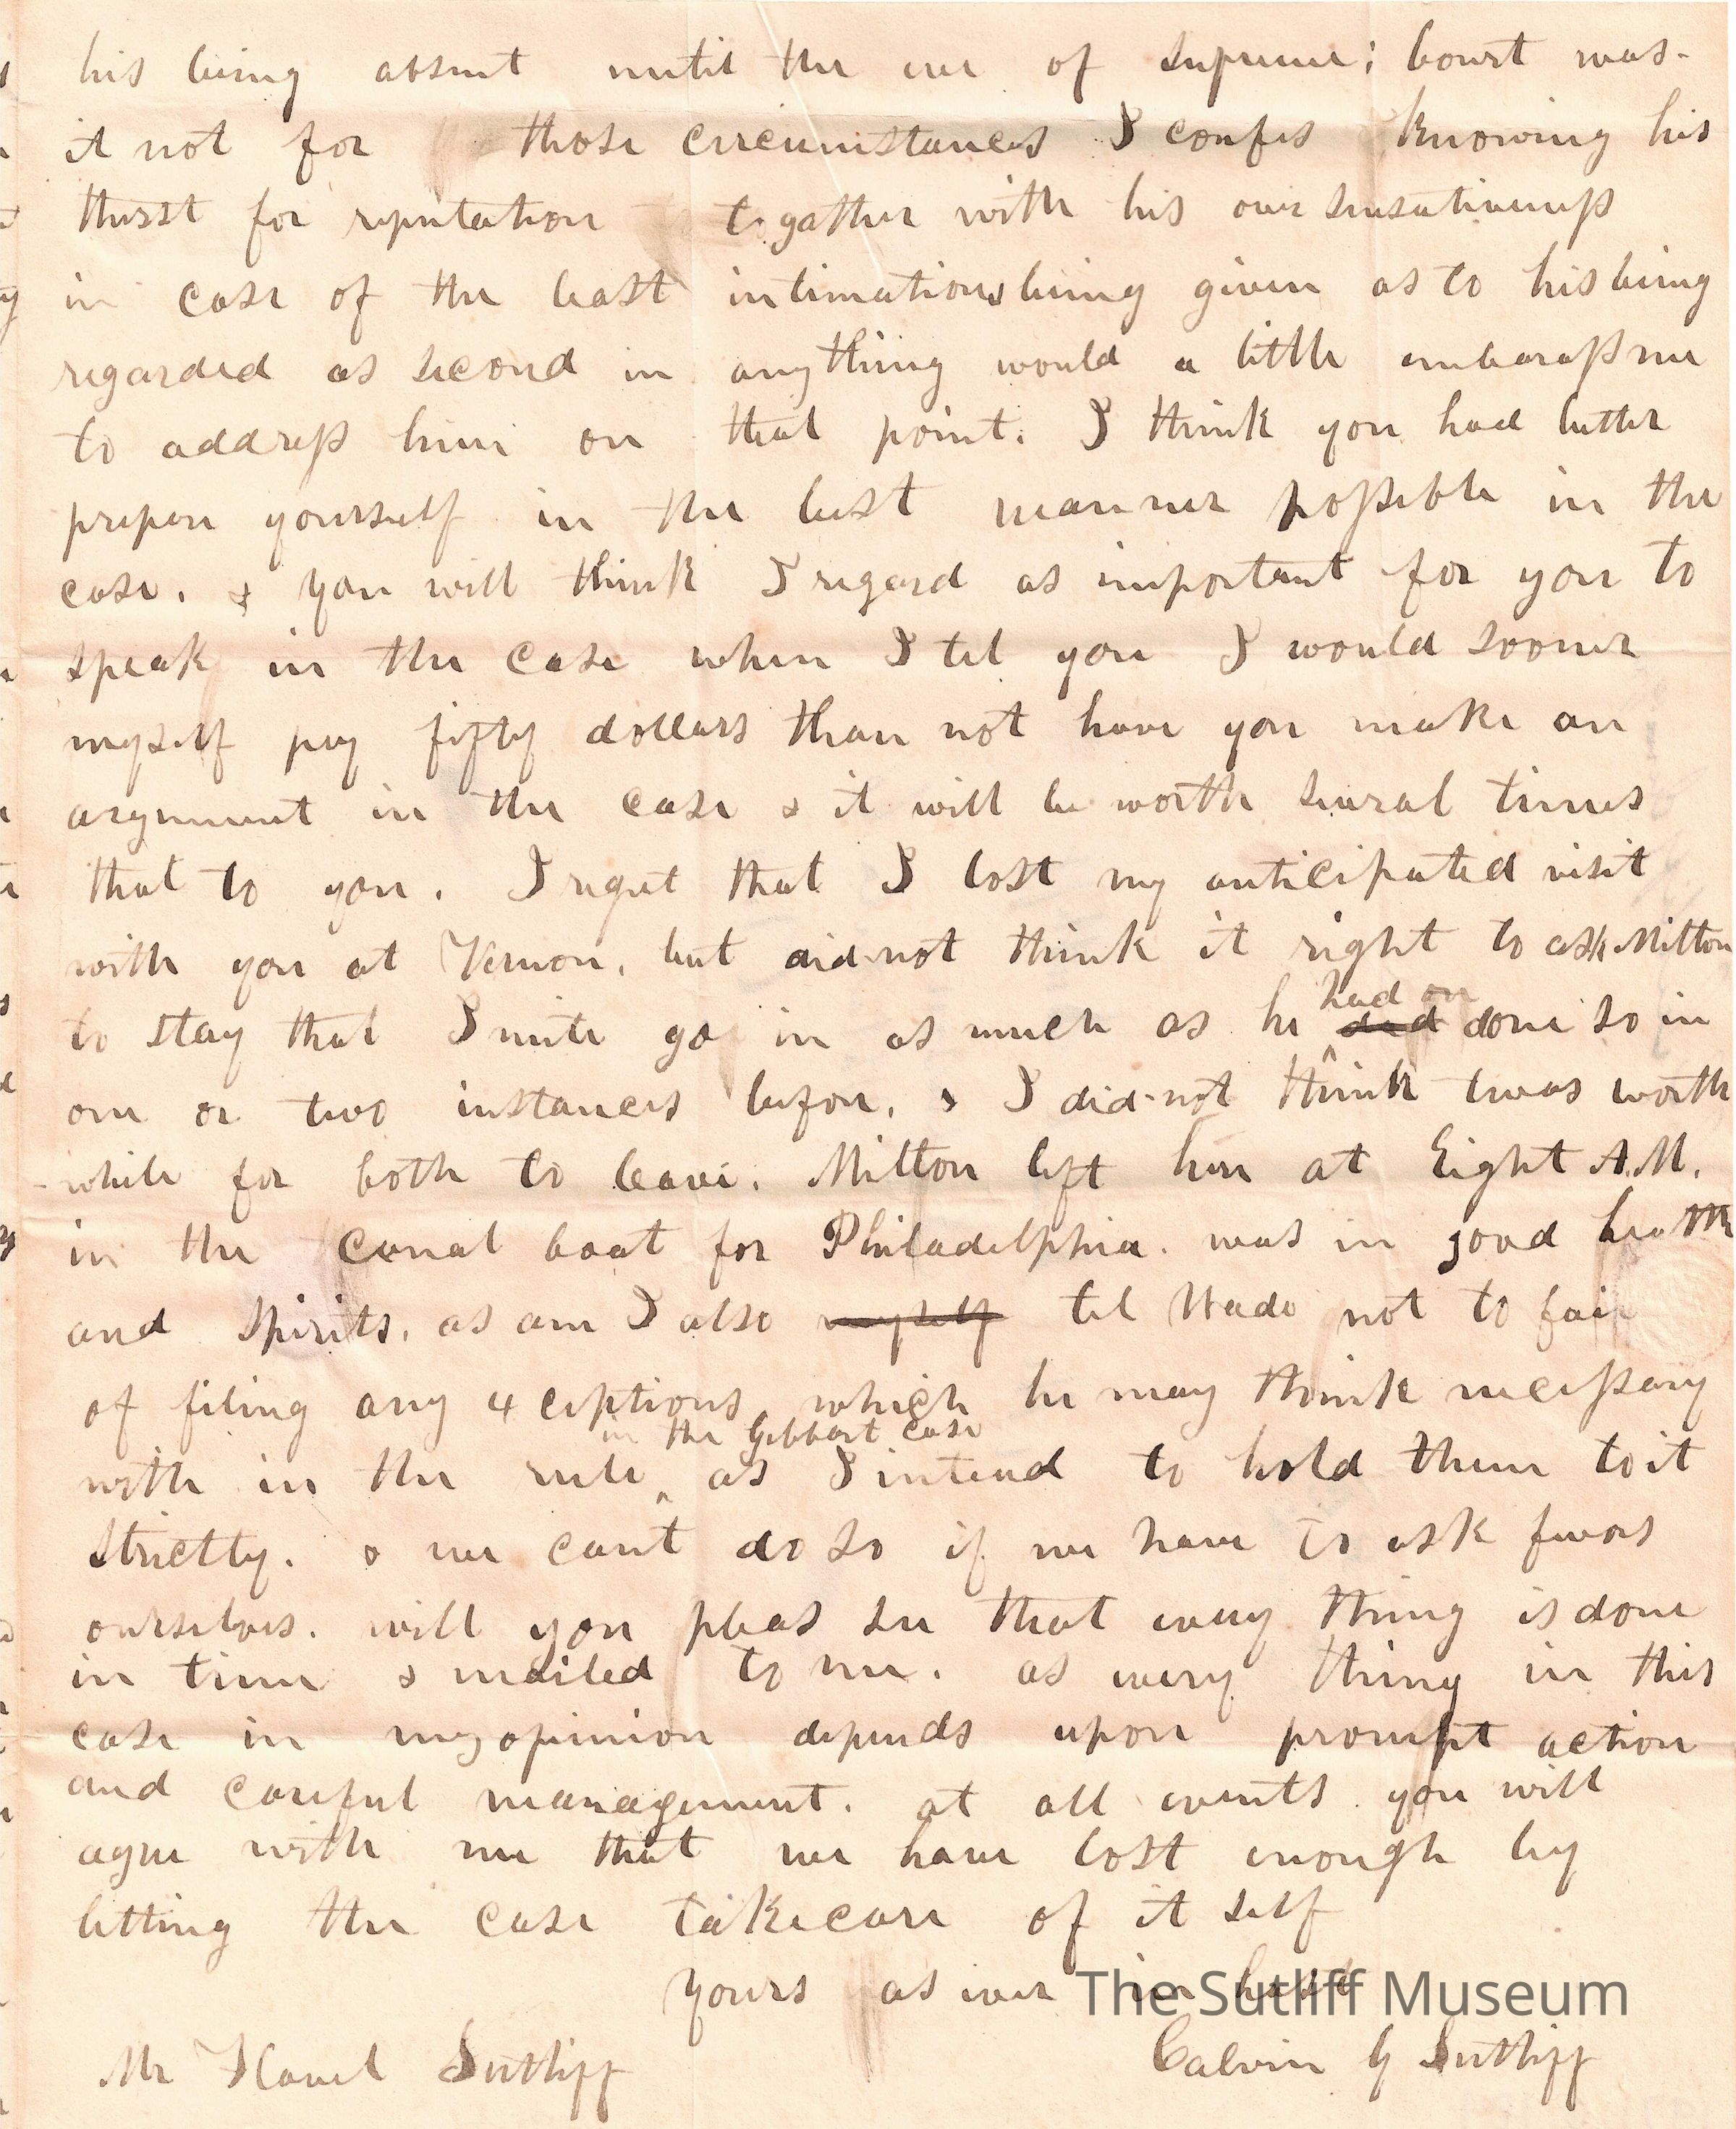 his being absent until the eve of supreme; Court was-
it not for those circumstances I confes knowing his
thirst for reputation togather with his over sensativeness
in case of the least intimations being given as to his being
regarded as second in any thing would a little embarass me
to address him on that point. I think you had better
prepare yourself in the best manner possible in the
case. & you will think I regard as important for you to
speak in the case when I tel you I would sooner
myself pay fifty dollars than not have you make an
argument in the case & it will be worth several times
that to you. I regret that I lost my anticipated visit
with you at Vernon. but did not think it right to ask Milton
to stay that I mite go in as much as he had on did done so in
one or two instances before. & I did not think twas worth
while for both to leave. Milton left here at Eight A.M.
in the canal boat for Philadelphia. was in good health
and spirits. as am I also myself tel Wade not to fail
of filing any exceptions which he may think necessary
with in the rule in the Gebhart case as I intend to hold them to it
strictly. & we cant do so if we have to ask favors
ourselves. will you pleas see that every thing is done
in time & mailed to me. as every thing in this
case in my opinion depends upon prompt action
and careful management. at all events you will
agree with me that we have lost enough by
letting the case take care of it self
yours as ever in hast
Calvin G Sutliff
Mr Flavel Sutliff
The Sutliff Museum